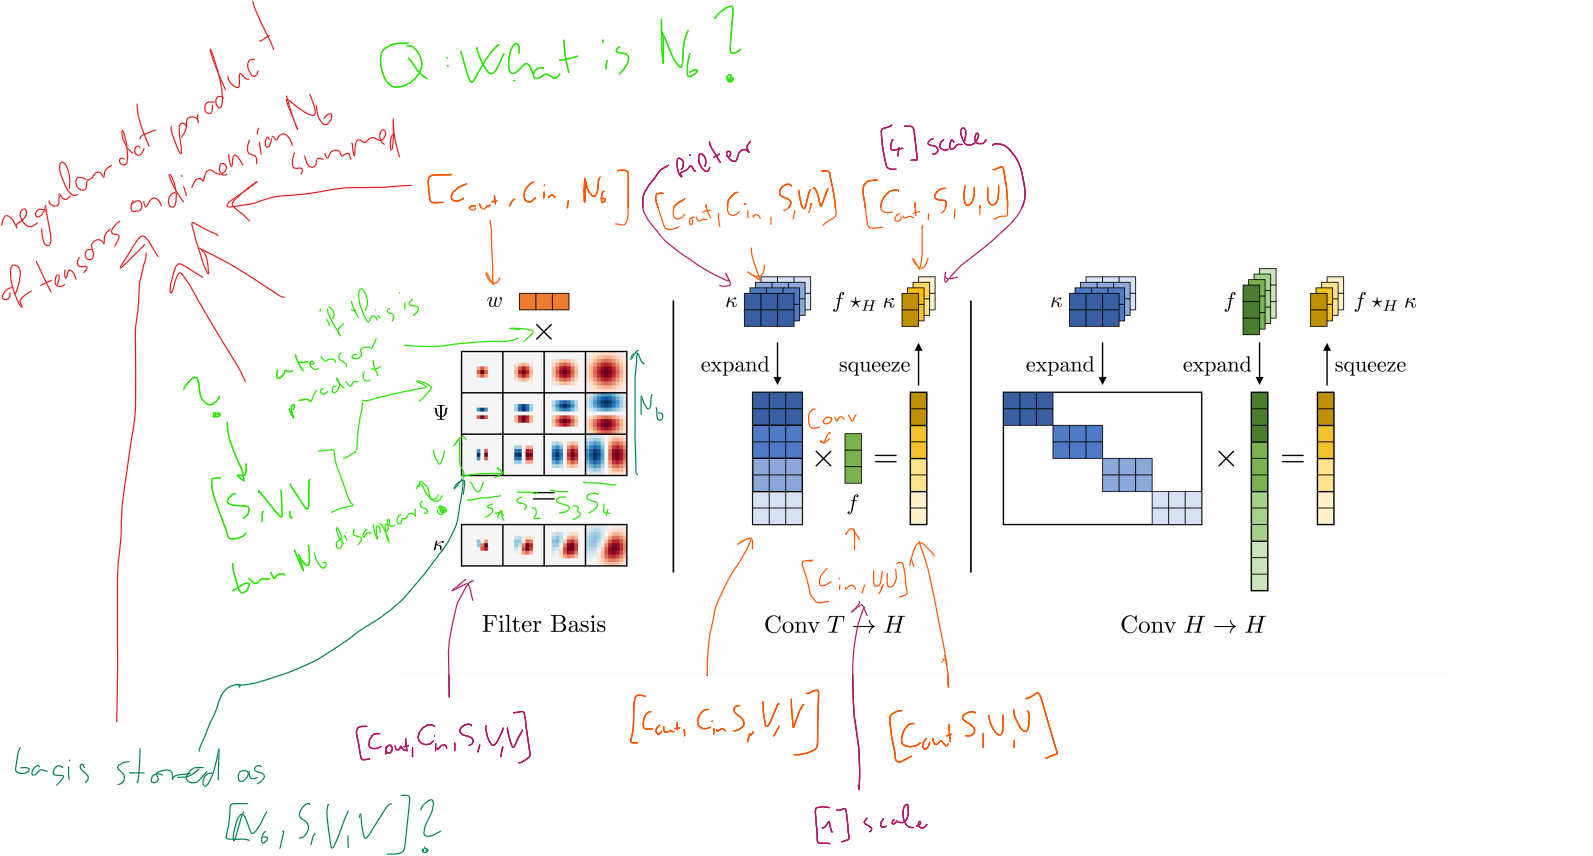 Q: What is N_b?
regular dot product
of tensors on dimension N_b
summed
[C_out, C_in, N_b]
filter
[C_out, C_in, S, V, V]
[4] scale
[C_out, S, U, U]
w
×
if this is
a tensor
product
?
[S, V, V]
turn N_b disappears?
Ψ
N_b
V
V
S_1 S_2 S_3 S_4
=
κ
Filter Basis
[C_out, C_in, S, V, V]
basis stored as
[N_b, S, V, V]?
κ
f ⋆_H κ
expand
squeeze
Conv
×
=
f
[C_in, U, U]
Conv T → H
[C_out, C_in S, V, V]
[C_out S, U, U]
[1] scale
κ
f
f ⋆_H κ
expand
expand
squeeze
×
=
Conv H → H